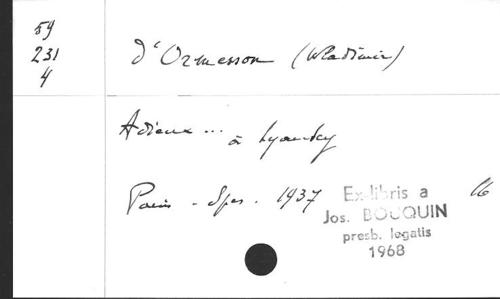 59
231
4
d'Ormesson (Wladimir)
Adieux ... à Lyautey
Paris - Spes - 1937
Ex-libris a
Jos. BOUQUIN
presb. legatis
1968